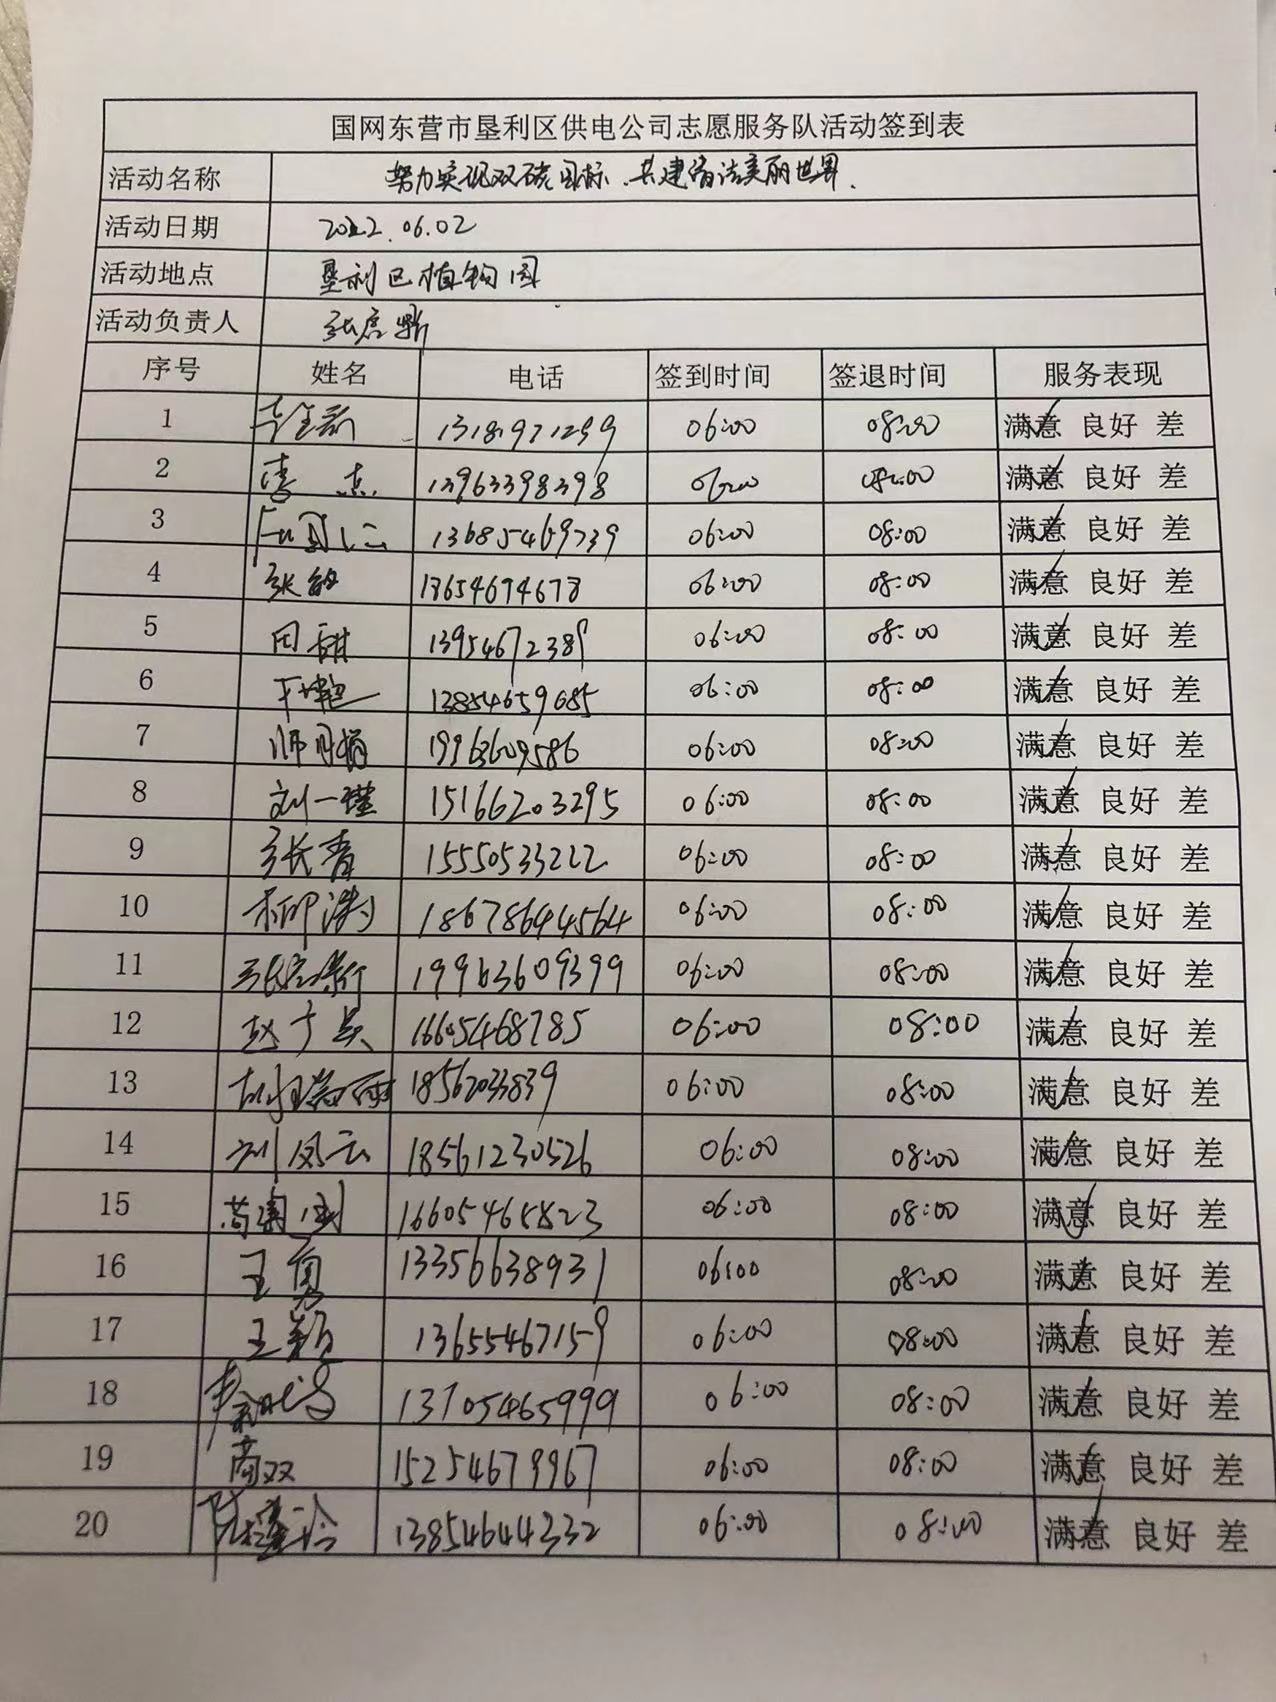 国网东营市垦利区供电公司志愿服务队活动签到表
活动名称 努力实现双碳目标、共建清洁美丽世界.
活动日期 2022.06.02
活动地点 垦利区植物园
活动负责人
序号 姓名 电话 签到时间 签退时间 服务表现
1 13181971299 06:00 08:00 满意 良好 差
2 李杰 13963398398 06:00 08:00 满意 良好 差
3 13685469739 06:00 08:00 满意 良好 差
4 张敏 18654694678 06:00 08:00 满意 良好 差
5 田甜 13954672389 06:00 08:00 满意 良好 差
6 13854659685 06:00 08:00 满意 良好 差
7 师丹娟 19963609586 06:00 08:00 满意 良好 差
8 刘一瑾 15166203295 06:00 08:00 满意 良好 差
9 张长青 15550533222 06:00 08:00 满意 良好 差
10 18678644564 06:00 08:00 满意 良好 差
11 19963609399 06:00 08:00 满意 良好 差
12 16605468785 06:00 08:00 满意 良好 差
13 18562033839 06:00 08:00 满意 良好 差
14 刘凤云 18561230526 06:00 08:00 满意 良好 差
15 16605465823 06:00 08:00 满意 良好 差
16 王勇 13356638931 06:00 08:00 满意 良好 差
17 王颖 13655467159 06:00 08:00 满意 良好 差
18 13705465999 06:00 08:00 满意 良好 差
19 商双 15254679967 06:00 08:00 满意 良好 差
20 13854644332 06:00 08:00 满意 良好 差